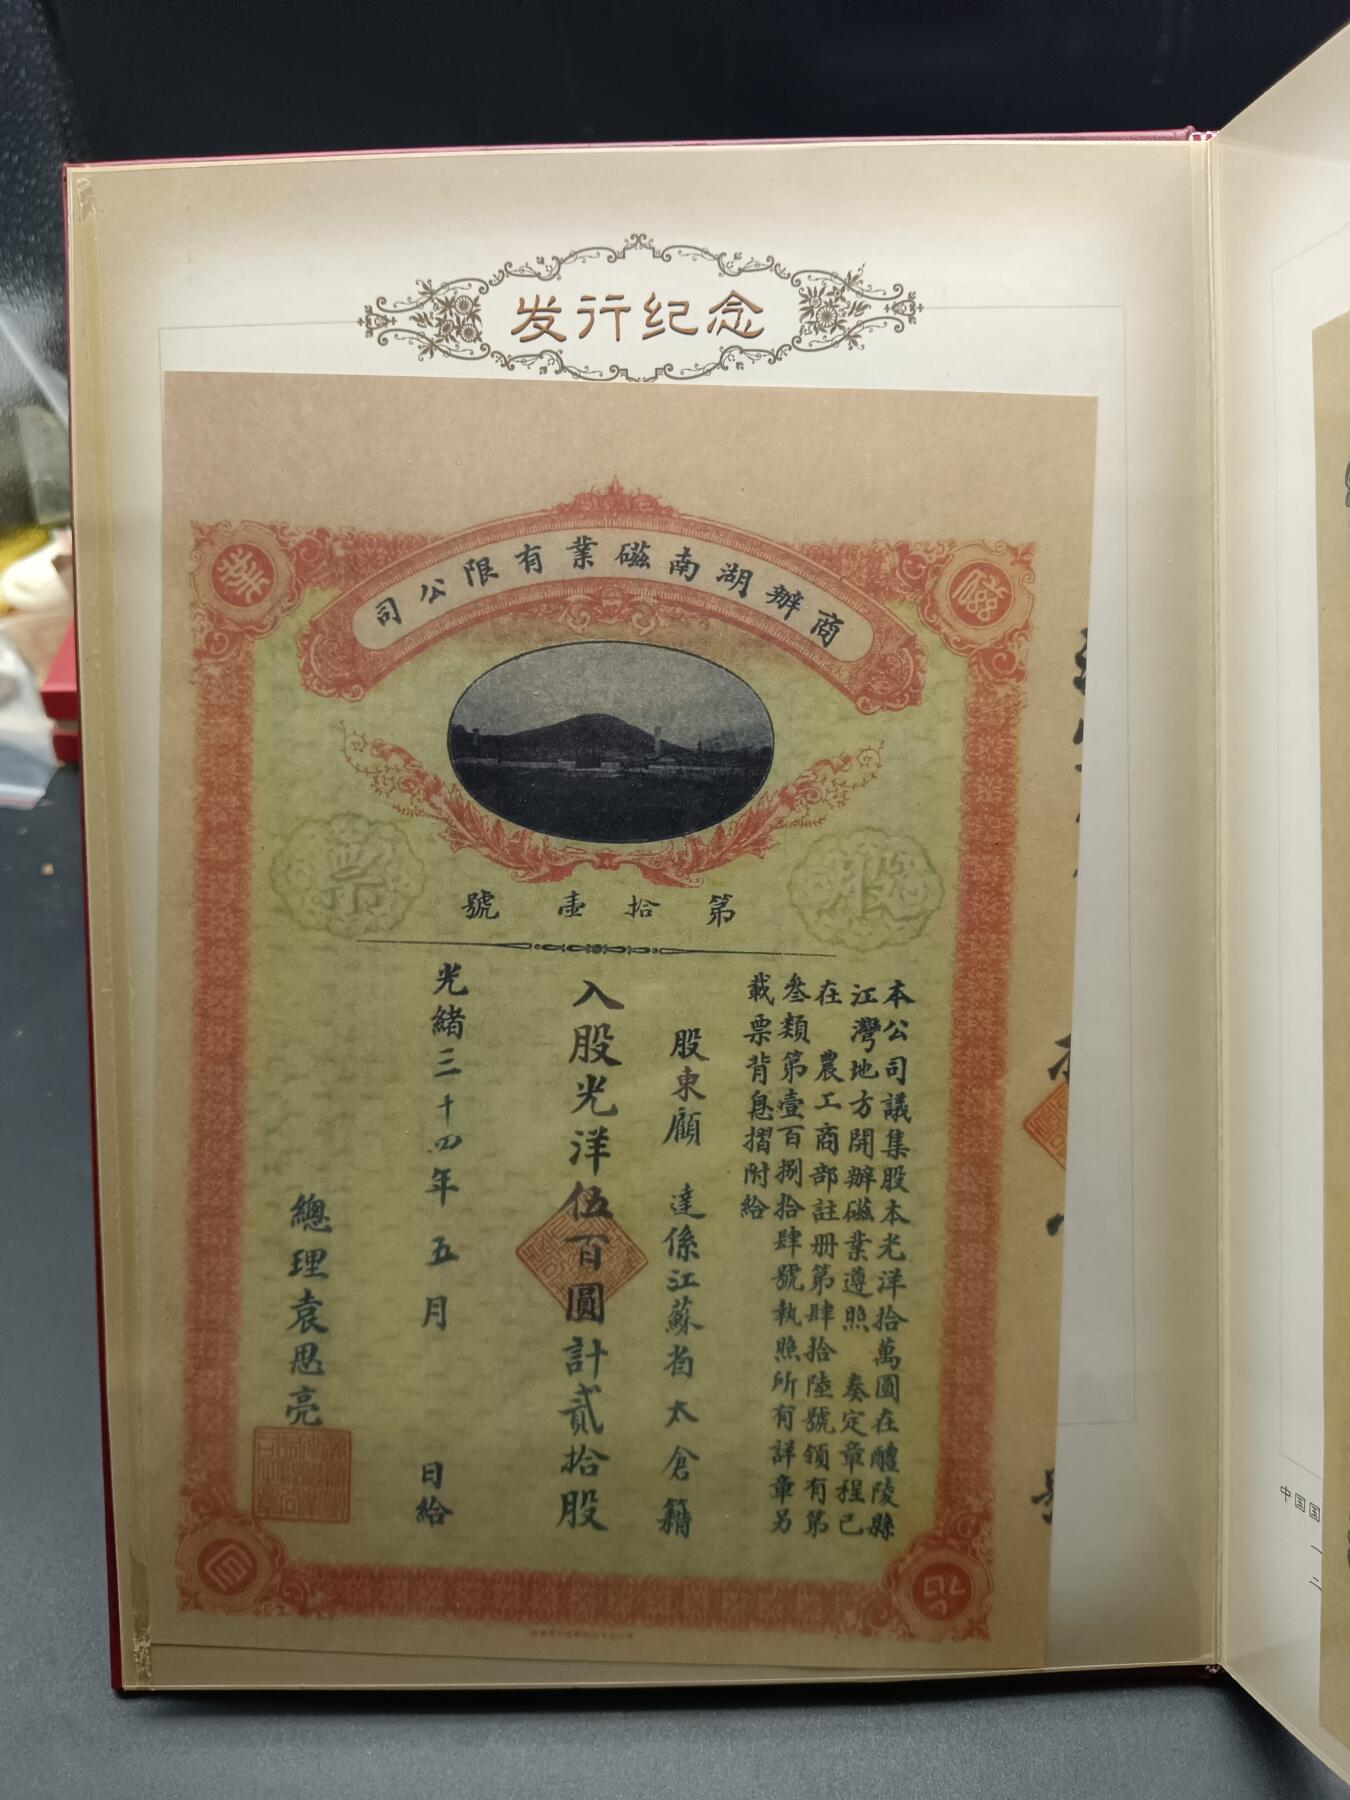 发行纪念
商辦湖南磁業有限公司
磁
業
公
司
股
票
第拾壹號
本公司議集股本光洋拾萬圓在醴陵縣
江灣地方開辦磁業遵照 奏定章程已
在 農工商部註册第肆拾陸號領有第
叁類第壹百捌拾肆號執照所有詳章另
載票背息摺附給
股東顧 達係江蘇省太倉籍
入股光洋伍百圓計貳拾股
光緒三十四年 五 月 日給
總理袁思亮
中国国
一
二